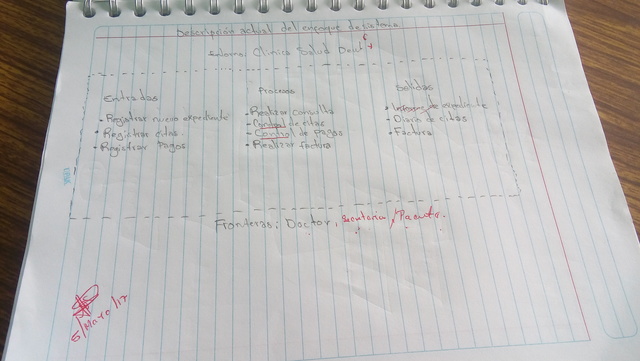 Descripción actual del enfoque de sistema
Entorno: Clinica Salud
Entradas
- Registrar nuevo expediente
- Registrar citas.
- Registrar Pagos
Procesos
- Realizar consulta
- Control de citas
- Control de pagos
- Realizar factura
Salidas
expediente
- Diario de citas
- Factura
Fronteras: Doctor, Secretaria / Paciente.
5/Marzo/17